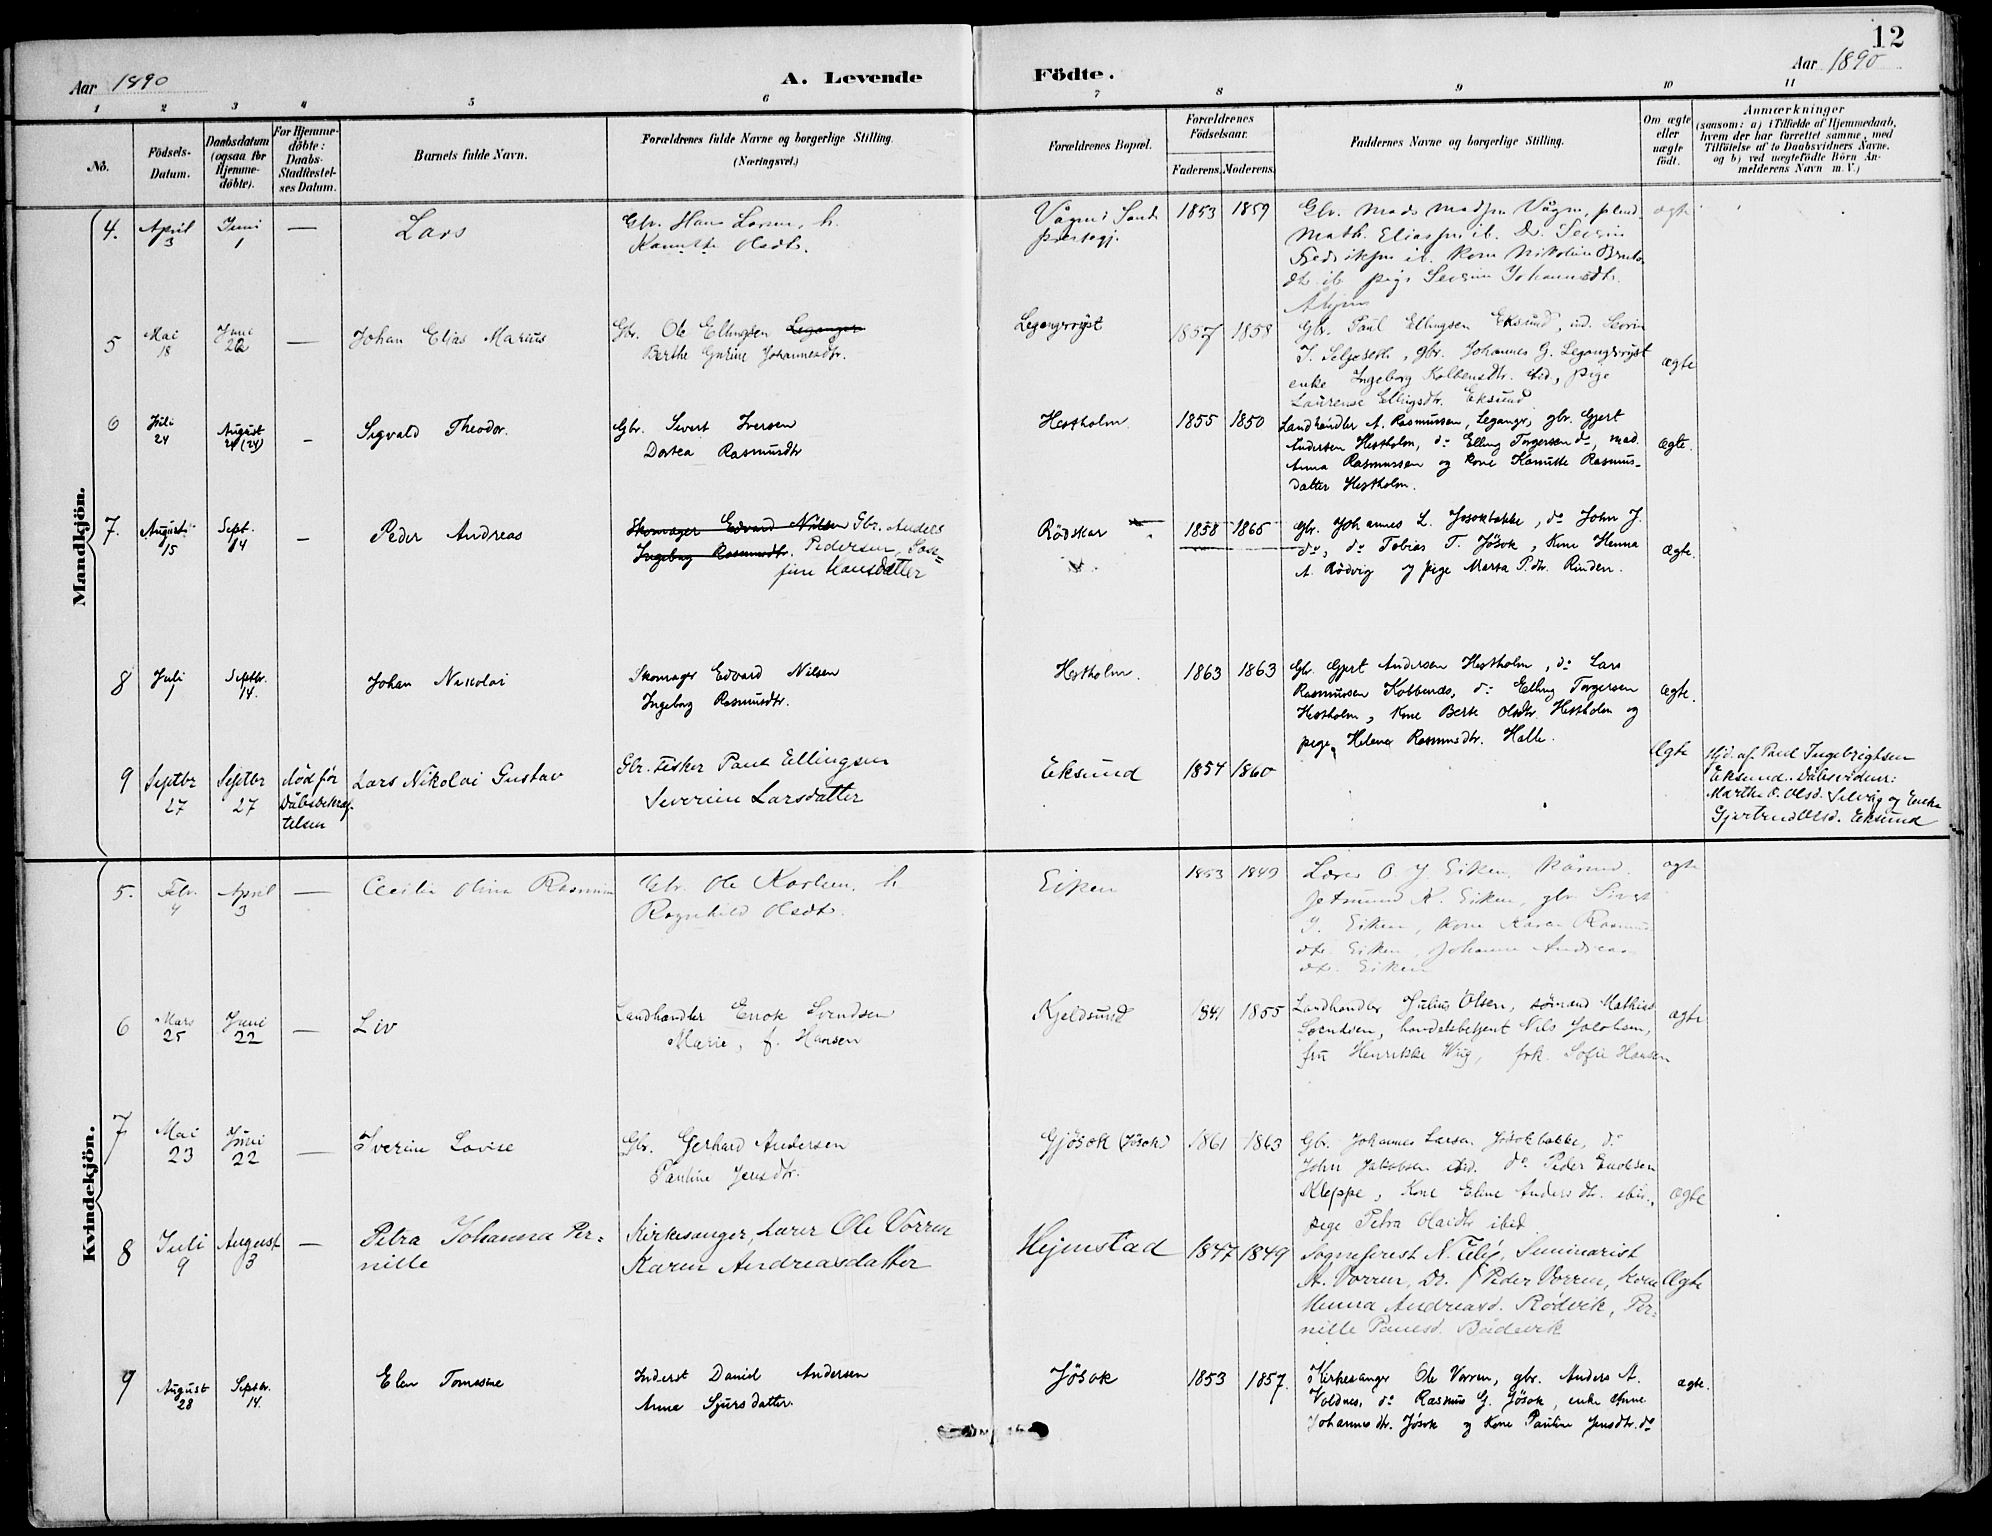 12
Aar 1890
A. Levende
Födte.
Aar 1890
1 2 3 4 5 6 7 8 9 10 11
No.
Födsels-
Datum.
Daabsdatum
(ogsaa for
Hjemme-
döbte).
For Hjemme-
döbte:
Daabs-
Stadfæstel-
ses Datum.
Barnets fulde Navn.
Forældrenes fulde Navne og borgerlige Stilling.
(Næringsvei.)
Forældrenes Bopæl.
Forældrenes
Födselsaar.
Faderens. Moderens.
Faddernes Navne og borgerlige Stilling.
Om ægte
eller
uægte
födt.
Anmærkninger
(saasom: a) i Tilfælde af Hjemmedaab,
hvem der har forrettet samme, med
Tilföielse af to Daabsvidners Navne.
og b) ved uægtefödte Börn An-
melderens Navn m. V.)
Mandkjön.
4. April 3 Juni 1 — Lars
Gbr. Hans Larsen, h.
Kanutte Olsdtr.
Vågen i Sande
præstegj.
1853 1859
Gbr. Mads Madsen Vågen,
Math. Eliassen ib. Do. Severin
Fredriksen ib. Kone Nikoline
dtr. ib. pige Severine Johannesdtr.
ægte
5 Mai 18 Juni 22 — Johan Elias Marius
Gbr. Ole Ellingsen Leganger
Berthe Gurine Johannesdtr.
Legangerøyst
1857 1858
Gbr. Paul Ellingsen Eksund, ud. Severin
J. Seljeseth, gbr. Johannes G. Legangerøyst
enke Ingeborg Kolbensdtr. ibid, pige
Laurense Ellingsdtr. Eksund
ægte
6 Juli 24 August 24 (24) — Sigvald Theodor.
Gbr. Sivert Iversen
Dortea Rasmusdtr
Hestholm
1855 1850
Landhandler A. Rasmussen, Leganger, gbr. Gjert
Andersen Hestholm, do Elling Torgersen do, mad.
Anna Rasmussen og kone Kanutte Rasmus-
datter Hestholm.
ægte.
7. August 15 Sept. 14 — Peder Andreas
Skomager Edvard Nilsen Gbr. Anders
Ingeborg Rasmusdtr. Pedersen, Jose-
fine Hansdatter
Rödskar
1858 1865
Gbr. Johannes L. Jøsokbakke, do John J.
do, do Tobias T. Jøsok, Kone Henna
A. Rödvig og pige Marta P.dtr. Rinden.
ægte.
8 Juli 1 Septbr. 14. Johan Nikolai
Skomager Edvard Nilsen
Ingeborg Rasmusdtr.
Hestholm.
1863 1863
Gbr. Gjert Andersen Hestholm, do Lars
Rasmussen Kobbenes, do Elling Torgersen
Hestholm, Kone Berte Olsdtr. Hestholm og
pige Helene Rasmusdtr. Halle.
ægte.
9 Septbr 27 Septbr 27 död för
Dåbsbekræf-
telsen
Lars Nikolai Gustav
Gbr. Fisker Paul Ellingsen
Severine Larsdatter
Eksund
1854 1860
Ægte
Hjd. af Paul Ingebrigtsen
Eksund. Dåbsvidner:
Marthe O. Olsd. Selvåg og Enke
Gjertrud Olsd. Eksund
Kvindekjön.
5. Febr. 4 April 3 — Cecilie Olina Rasmine
Gbr. Ole Karlsen, h
Ragnhild Olsdtr.
Eiken
1853 1849
Lærer O. J. Eiken,
Jetmund K. Eiken, gbr. Sivert
J. Eiken, kone Karen Rasmus
dtr. Eiken, Johanne Andreas
dtr. Eiken
ægte
6 Mars 25 Juni 22 — Liv
Landhandler Enok Svendsen
Marie, f. Hansen
Kjeldsund
1841 1855
Landhandler Julius Olsen, sømand Mathias
Svendsen, handelsbetjent Nils Jacobsen,
fru Henrikke Wiig, frk. Sofie Hansen
ægte
7 Mai 23 Juni 22 — Iverine Lovise
Gbr. Gerhard Andersen
Pauline Jensdtr.
Gjøsok (Jøsok)
1861 1863
Gbr. Johannes Larsen Jøsokbakke, do
John Jakobsen ibid. do Peder Enoksen
Kleppe, Kone Eline Andersdtr. ibid.,
pige Petra Olaidtr ibid
ægte
8 Juli 9 August 3 — Petra Johanna Per-
nille
Kirkesanger, Lærer Ole Vorren
Karen Andreasdatter
Hejmstad
1847 1849
Sognepræst N. Seminarist
A. Vorren, Do. Peder Vorren, Kone
Henna Andreasd. Rødvik, Per-
nille Paulsd. Bådsvik
Ægte
9 August 28 Septbr. 14. Elen Tomasine
Inderst Daniel Andersen
Anna Sjursdatter.
Jøsok
1853 1857.
Kirkesanger Ole Vorren, gbr. Anders A.
Voldnes, do Rasmus G. Jøsok, enke Anne
Johannesdtr. Jøsok og Kone Pauline Jensdtr. do
ægte.